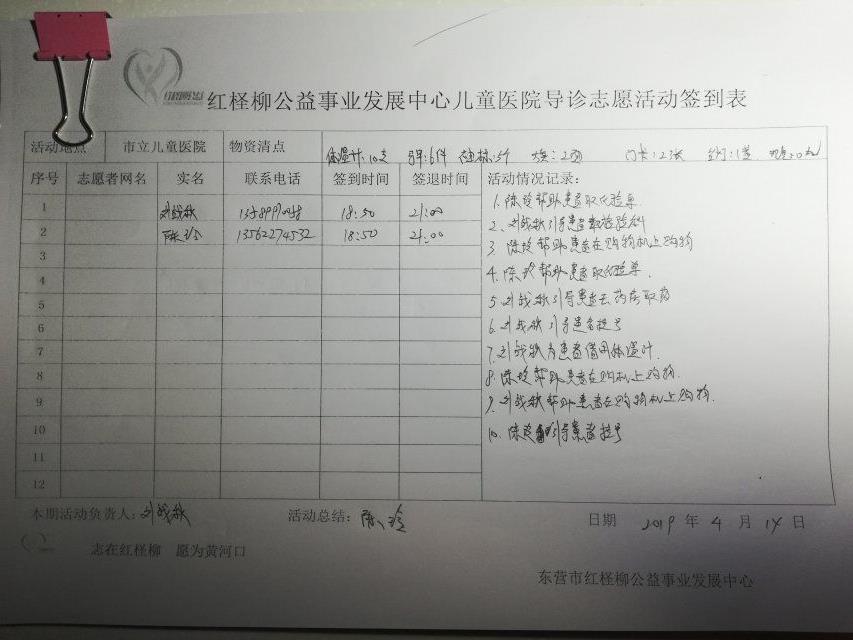 红柽柳公益事业发展中心儿童医院导诊志愿活动签到表
活动地点 市立儿童医院 物资清点 体温计:10支
序号 志愿者网名 实名 联系电话 签到时间 签退时间 活动情况记录:
1 刘战秋 18:50 21:00 1.陈玲帮助患者取化验单
2 陈玲 13562274532 18:50 21:00 2、刘战秋引导患者
3 3 陈玲帮助患者在购物机上购物
4 4、陈玲帮助患者取化验单.
5 5 刘战秋引导患者去药房取药
6 6、刘战秋引导患者挂号
7 7、刘战秋为患者借用体温计.
8 8、陈玲帮助患者在购机上购物.
9 9、刘战秋帮助患者在购物机上购物.
10 10、陈玲引导患者挂号
11
12
本期活动负责人:刘战秋 活动总结:陈玲 日期 2019 年 4 月 14 日
志在红柽柳 愿为黄河口
东营市红柽柳公益事业发展中心